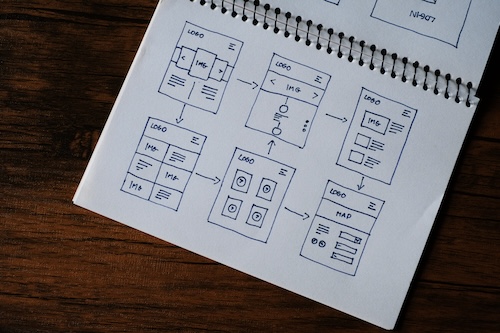 NI-907
LOGO
< IMG >
LOGO
< IMG >
LOGO
IMG
LOGO
IMG
IMG
IMG
LOGO
LOGO
MAP